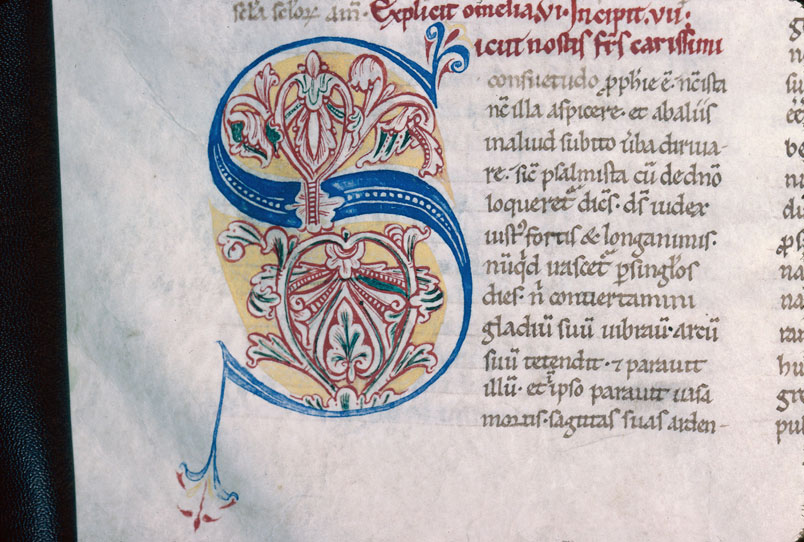 sc̄la sclorꝝ. am̄. Explicit omelia. VI. Incipit. VII.
Sicut nostis fr̄s carissimi
consuetudo ꝓph̄ie ē. nc̄ ista
nc̄ illa aspicere. et ab aliis
in aliud subito ūba diriua-
re. sic̄ psalmista cū de dn̄o
loqueret᷑ dic̄s. ds̄ iudex
iustꝰ fortis & longanimis.
nūq̄d irascet᷑ p̄ sing̣los
dies. n̄ conuertamini
gladiū suū uibrau᷑. arcū
suū tetendit. ⁊ parauit
illū. et in ipso parauit uasa
mortis. sagittas suas arden-